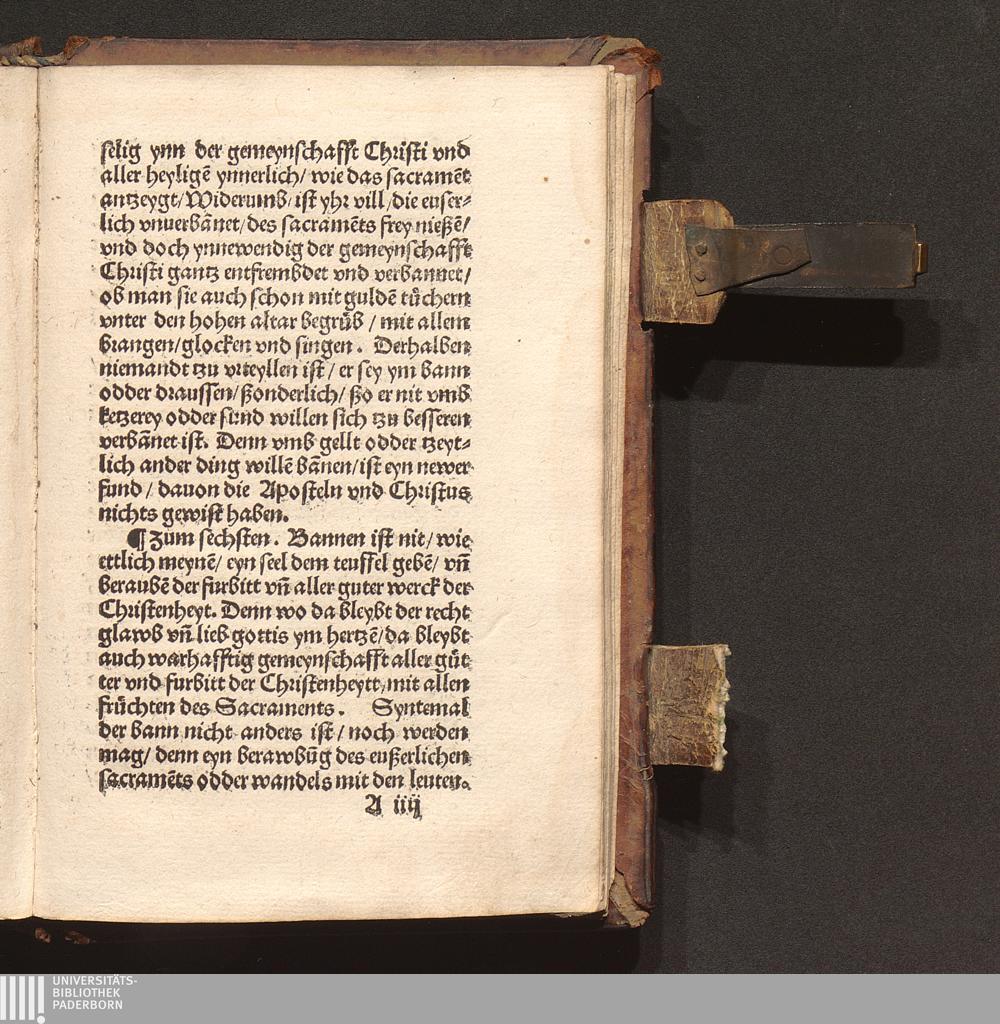 selig ynn der gemeynschafft Christi vnd
aller heyligē ynnerlich/ wie das sacramēt
antzeygt/Widerumb/ ist yhr vill/die euser⸗
lich vnuerbānet/des sacramēts frey nießē/
vnd doch ynnewendig der gemeynschafft
Christi gantz entfrembdet vnd verbannet/
ob man sie auch schon mit guldē tüchern
vnter den hohen altar begrüb / mit allem
brangen/glocken vnd singen. Derhalben
niemandt tzu vrteyllen ist/ er sey ym bann
odder draussen/ßonderlich/ ßo er nit vmb
ketzerey odder sund willen sich tzu besseren
verbānet ist. Denn vmb gellt odder tzeyt⸗
lich ander ding willē bānen/ist eyn newer
fund / dauon die Aposteln vnd Christus
nichts gewist haben.
¶ Zum sechsten. Bannen ist nit/ wie
ettlich meynē/ eyn seel dem teuffel gebē/ vn̄
beraubē der furbitt vn̄ aller guter werck der
Christenheyt. Denn wo da bleybt der recht
glawb vn̄ lieb gottis ym hertzē/da bleybt
auch warhafftig gemeynschafft aller güt
ter vnd furbitt der Christenheytt, mit allen
früchten des Sacraments. Syntemal
der bann nicht anders ist / noch werden
mag/ denn eyn berawbūg des eußerlichen
sacramēts odder wandels mit den leuten.
A iiij
UNIVERSITÄTS-
BIBLIOTHEK
PADERBORN